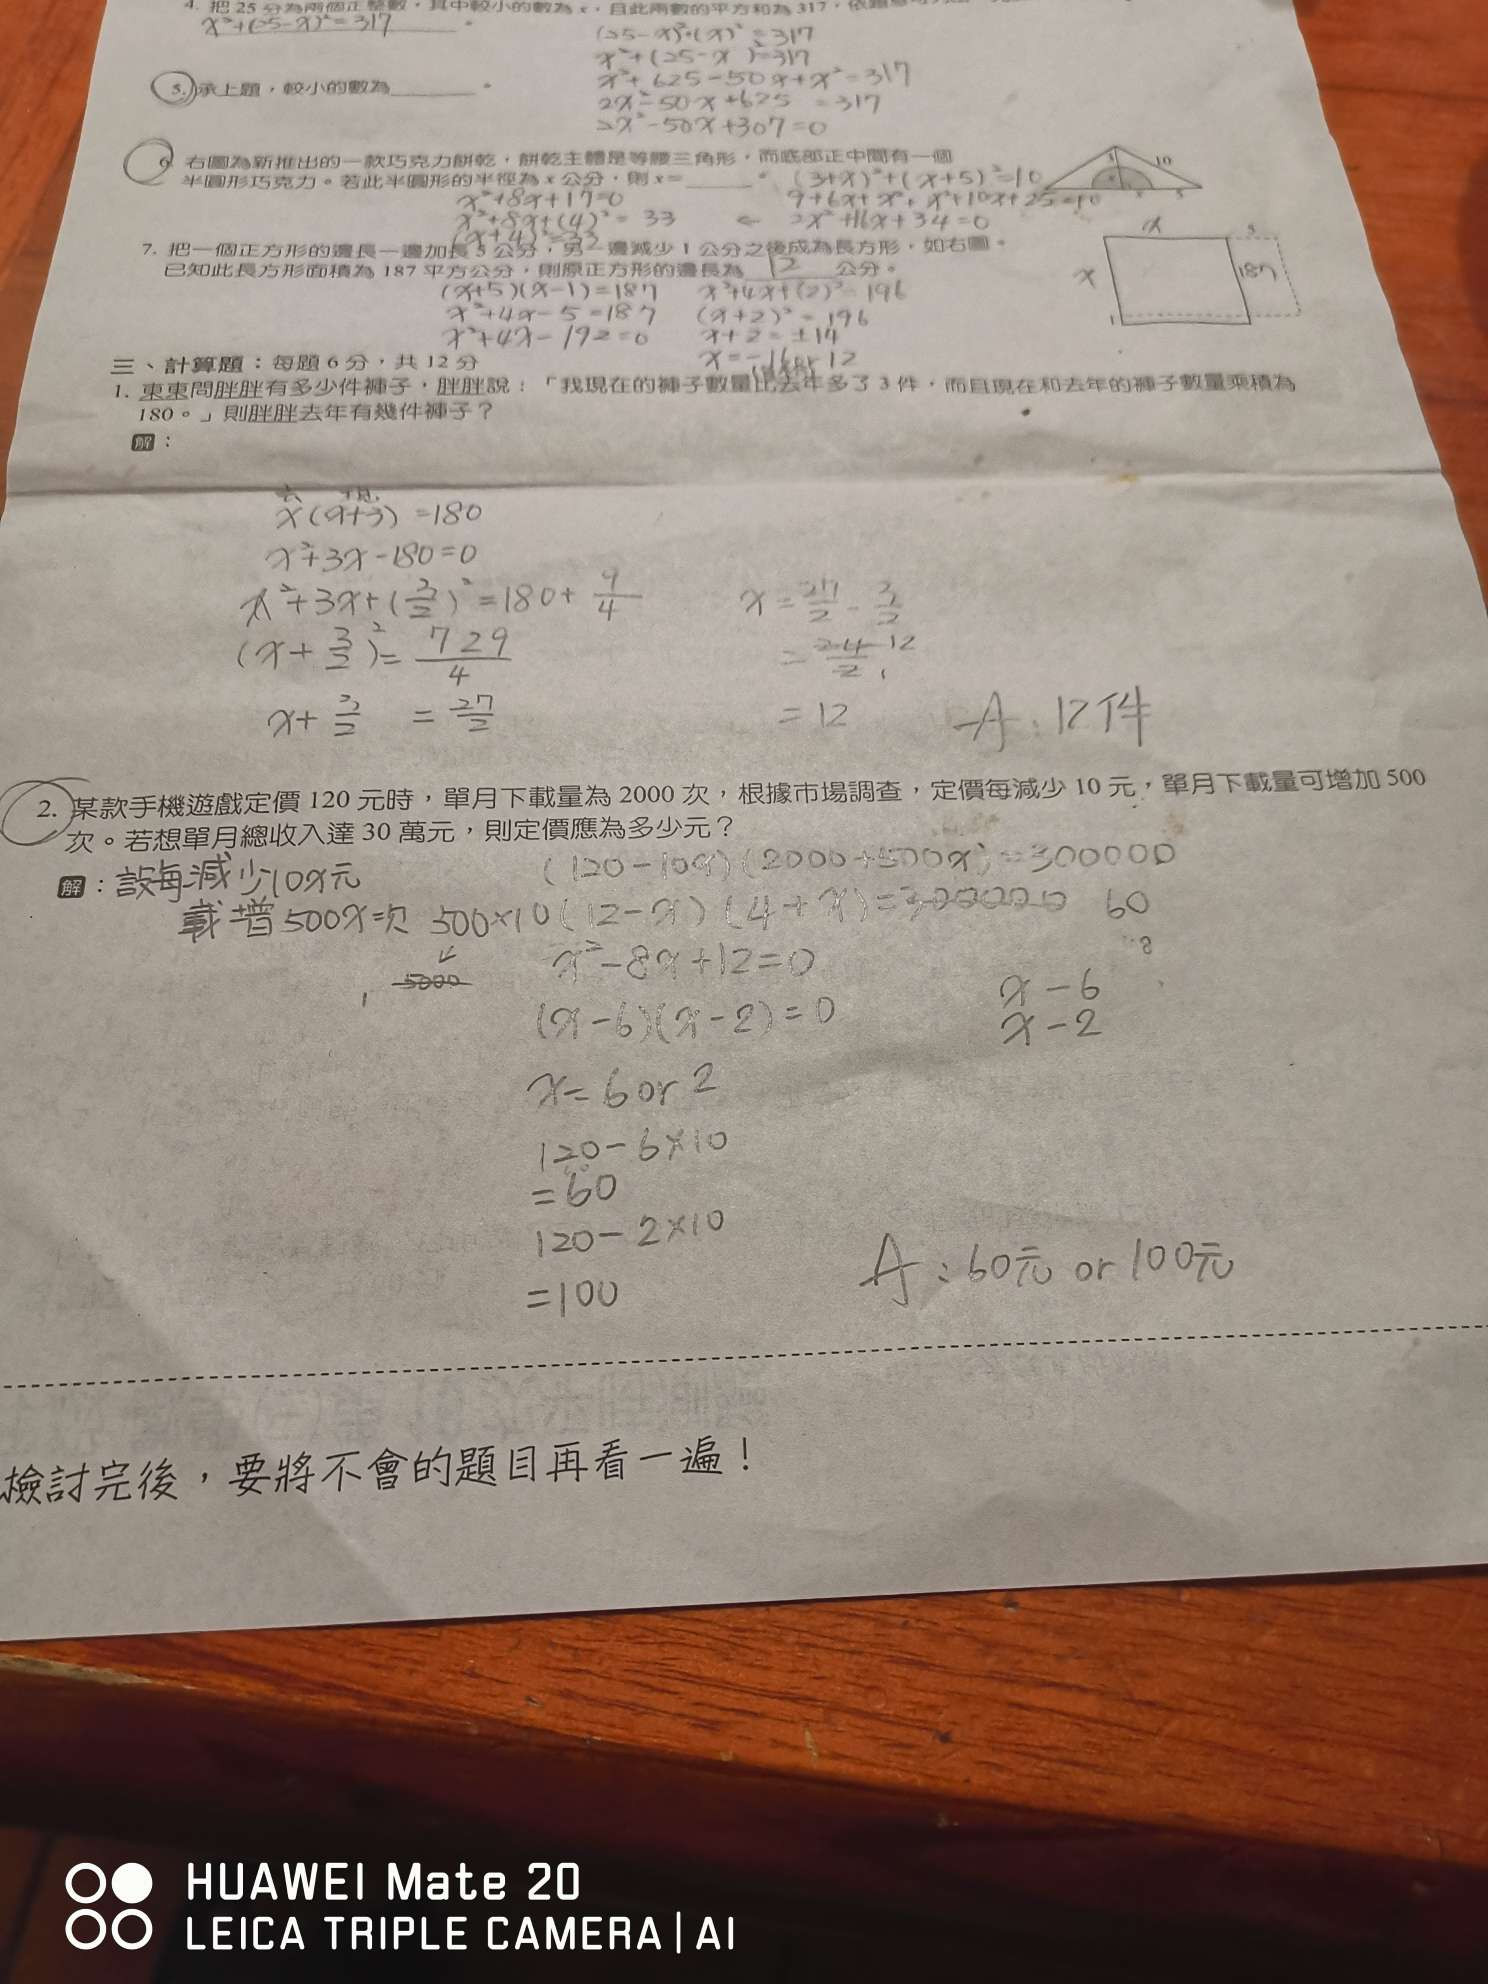 4. 把 25 分為兩個正整數，其中較小的數為 x，且此兩數的平方和為 317，
x²+(25-x)²=317
(25-x)²+(x)²=317
x²+(25-x)²=317
x²+625-50x+x²=317
2x²-50x+625 =317
2x²-50x+307=0
5. 承上題，較小的數為______。
6 右圖為新推出的一款巧克力餅乾，餅乾主體是等腰三角形，而底部正中間有一個
半圓形巧克力。若此半圓形的半徑為 x 公分，則 x=______。
(3+x)²+(x+5)²=10
9+6x+x²+x²+10x+25=10
2x²+16x+34=0
x²+8x+17=0
x²+8x+(4)²=33
(x+4)²=33
3
10
x
x
x
5
7. 把一個正方形的邊長一邊加長 5 公分，另一邊減少 1 公分之後成為長方形，如右圖。
已知此長方形面積為 187 平方公分，則原正方形的邊長為 12 公分。
(x+5)(x-1)=187
x²+4x-5=187
x²+4x-192=0
x²+4x+(2)²=196
(x+2)²=196
x+2=±14
x=-16or12
x
5
x
187
1
三、計算題：每題 6 分，共 12 分
1. 東東問胖胖有多少件褲子，胖胖說：「我現在的褲子數量比去年多了 3 件，而且現在和去年的褲子數量乘積為
180。」則胖胖去年有幾件褲子？
解：
去 現
x(x+3)=180
x²+3x-180=0
x²+3x+(3/2)²=180+9/4
(x+3/2)²=729/4
x+3/2 =27/2
x=27/2-3/2
=24/2 12 1
=12
A：12件
2. 某款手機遊戲定價 120 元時，單月下載量為 2000 次，根據市場調查，定價每減少 10 元，單月下載量可增加 500
次。若想單月總收入達 30 萬元，則定價應為多少元？
解：設每減少10x元
載增500x次
(120-10x)(2000+500x)=300000
500×10(12-x)(4+x)=300000 60
5000
x²-8x+12=0
(x-6)(x-2)=0
x -6
x -2
x=6or2
120-6×10
=60
120-2×10
=100
A：60元 or 100元
檢討完後，要將不會的題目再看一遍！
HUAWEI Mate 20
LEICA TRIPLE CAMERA | AI